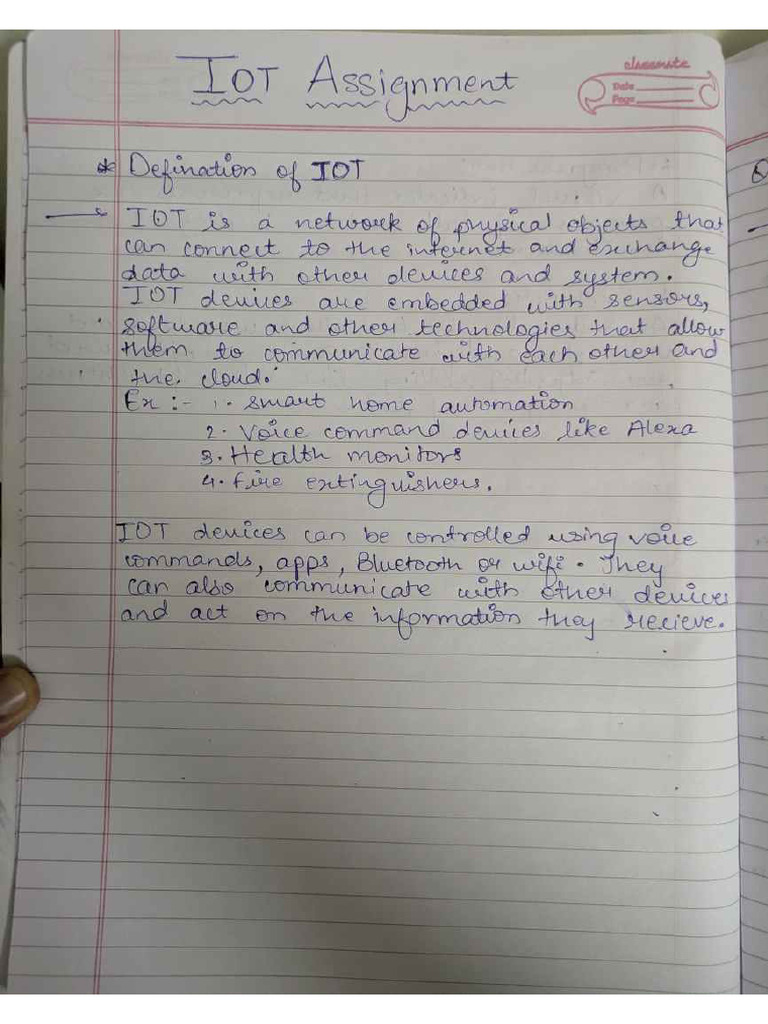 IOT Assignment
classmate
Date
Page
* Defination of IOT
→ IOT is a network of physical objects that
can connect to the internet and exchange
data with other devices and system.
IOT devices are embedded with sensors,
software and other technologies that allow
them to communicate with each other and
the cloud.
Ex :- 1. smart home automation
2. Voice command devices like Alexa
3. Health monitors
4. Fire extinguishers.
IOT devices can be controlled using voice
commands, apps, Bluetooth or wifi. They
can also communicate with other devices
and act on the information they recieve.